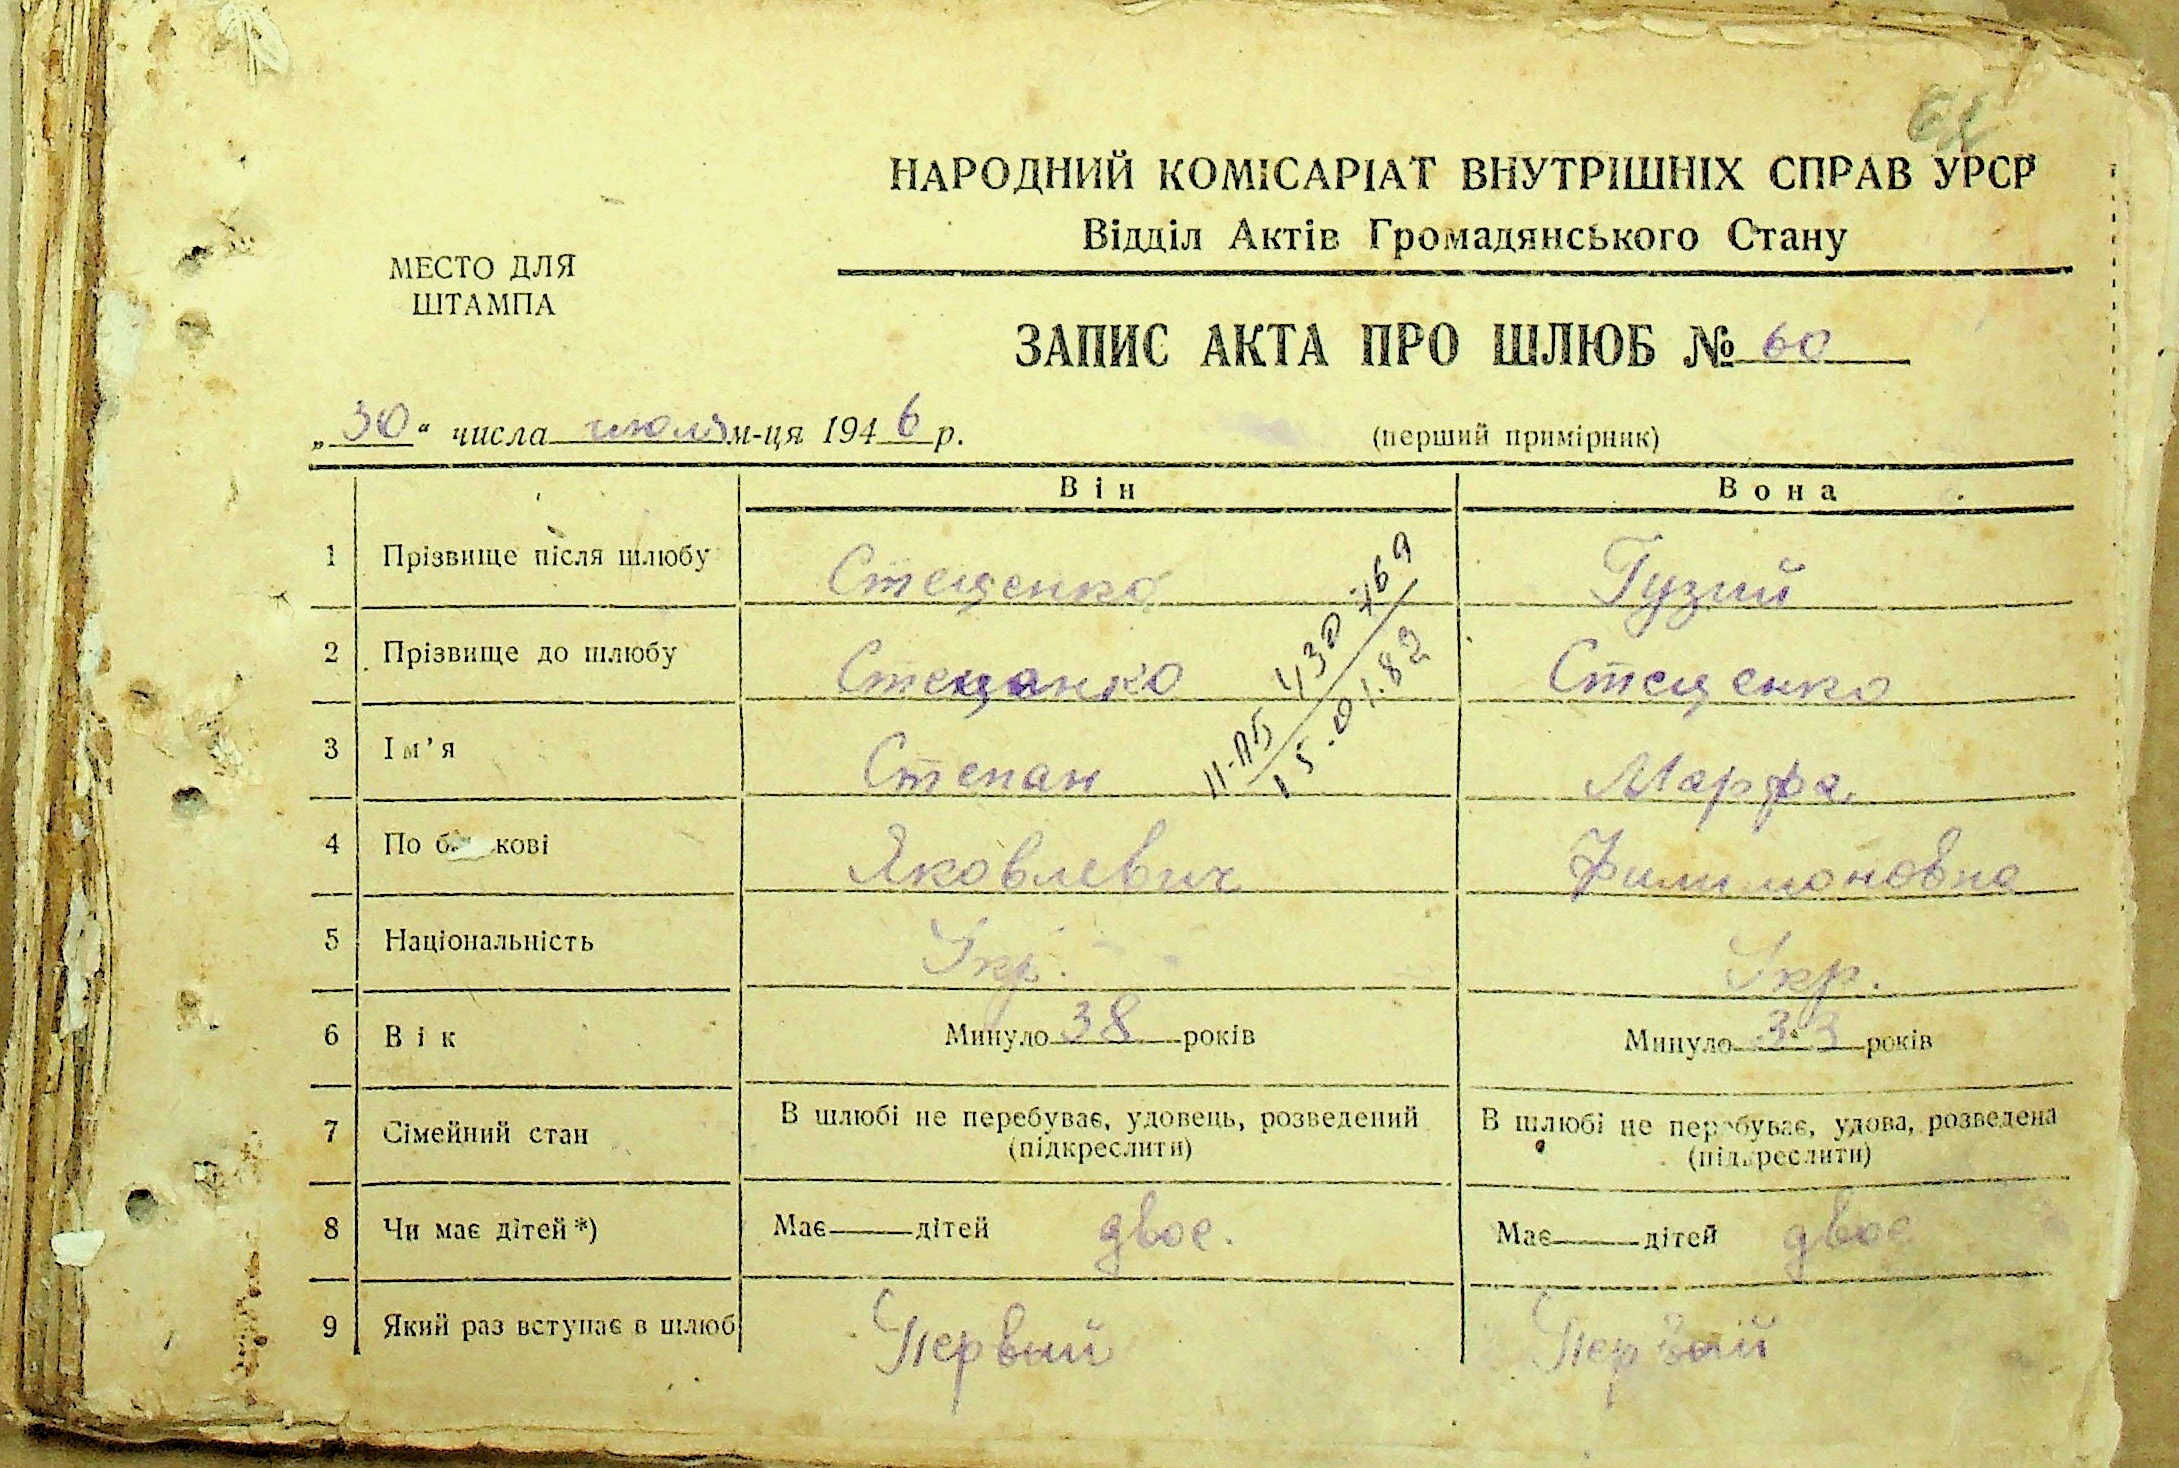 НАРОДНИЙ КОМІСАРІАТ ВНУТРІШНІХ СПРАВ УРСР
Відділ Актів Громадянського Стану
МЕСТО ДЛЯ
ШТАМПА
ЗАПИС АКТА ПРО ШЛЮБ № 60
„30“ числа июля м-ця 1946 р.
(перший примірник)
Він Вона
1 Прізвище після шлюбу Стещенко Гузий
2 Прізвище до шлюбу Стещенко Стещенко
3 Ім’я Степан Марфа
4 По б кові Яковлевич Филимоновна
5 Національність Укр. Укр.
6 Вік Минуло 38 років Минуло 33 років
7 Сімейний стан В шлюбі не перебуває, удовець, розведений В шлюбі не перебуває, удова, розведена
(підкреслити) (підкреслити)
8 Чи має дітей *) Має дітей двое. Має дітей двое
9 Який раз вступає в шлюб Первый Первый
II-ПБ 430769
15.01.82